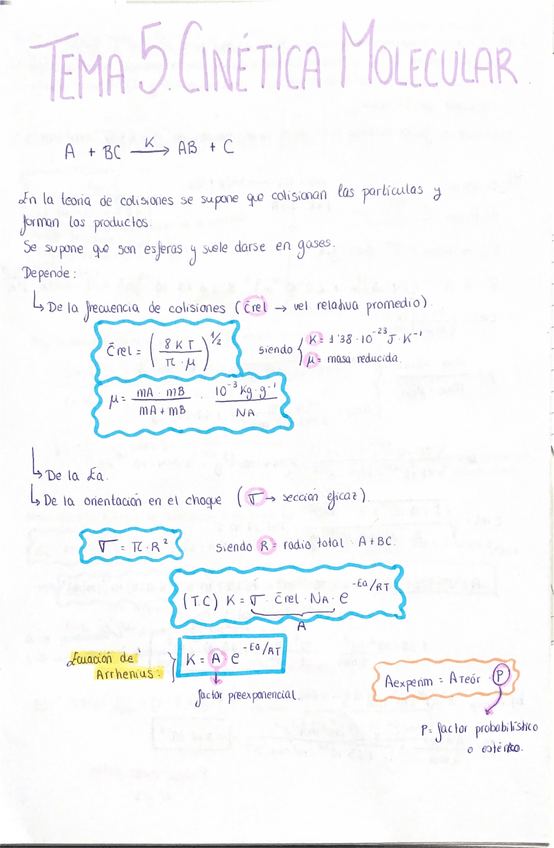 TEMA 5. CINÉTICA MOLECULAR
A + BC —K→ AB + C
En la teoría de colisiones se supone que colisionan las partículas y
forman los productos.
Se supone que son esferas y suele darse en gases.
Depende:
↳ De la frecuencia de colisiones (C̄rel → vel relativa promedio).
C̄rel = (8KT / π·μ)^1/2 siendo { K = 1'38·10^-23 J·K^-1
μ = masa reducida.
μ = mA·mB / mA+mB · 10^-3 Kg·g^-1 / NA
↳ De la Ea.
↳ De la orientación en el choque (σ → sección eficaz).
σ = π·R² siendo R = radio total · A+BC.
(TC) K = σ · C̄rel · NA · e^-Ea/RT
A
Ecuación de
Arrhenius: } K = A e^-Ea/RT
factor preexponencial.
Aexperim = Ateór · P
P = factor probabilístico
o estérico.